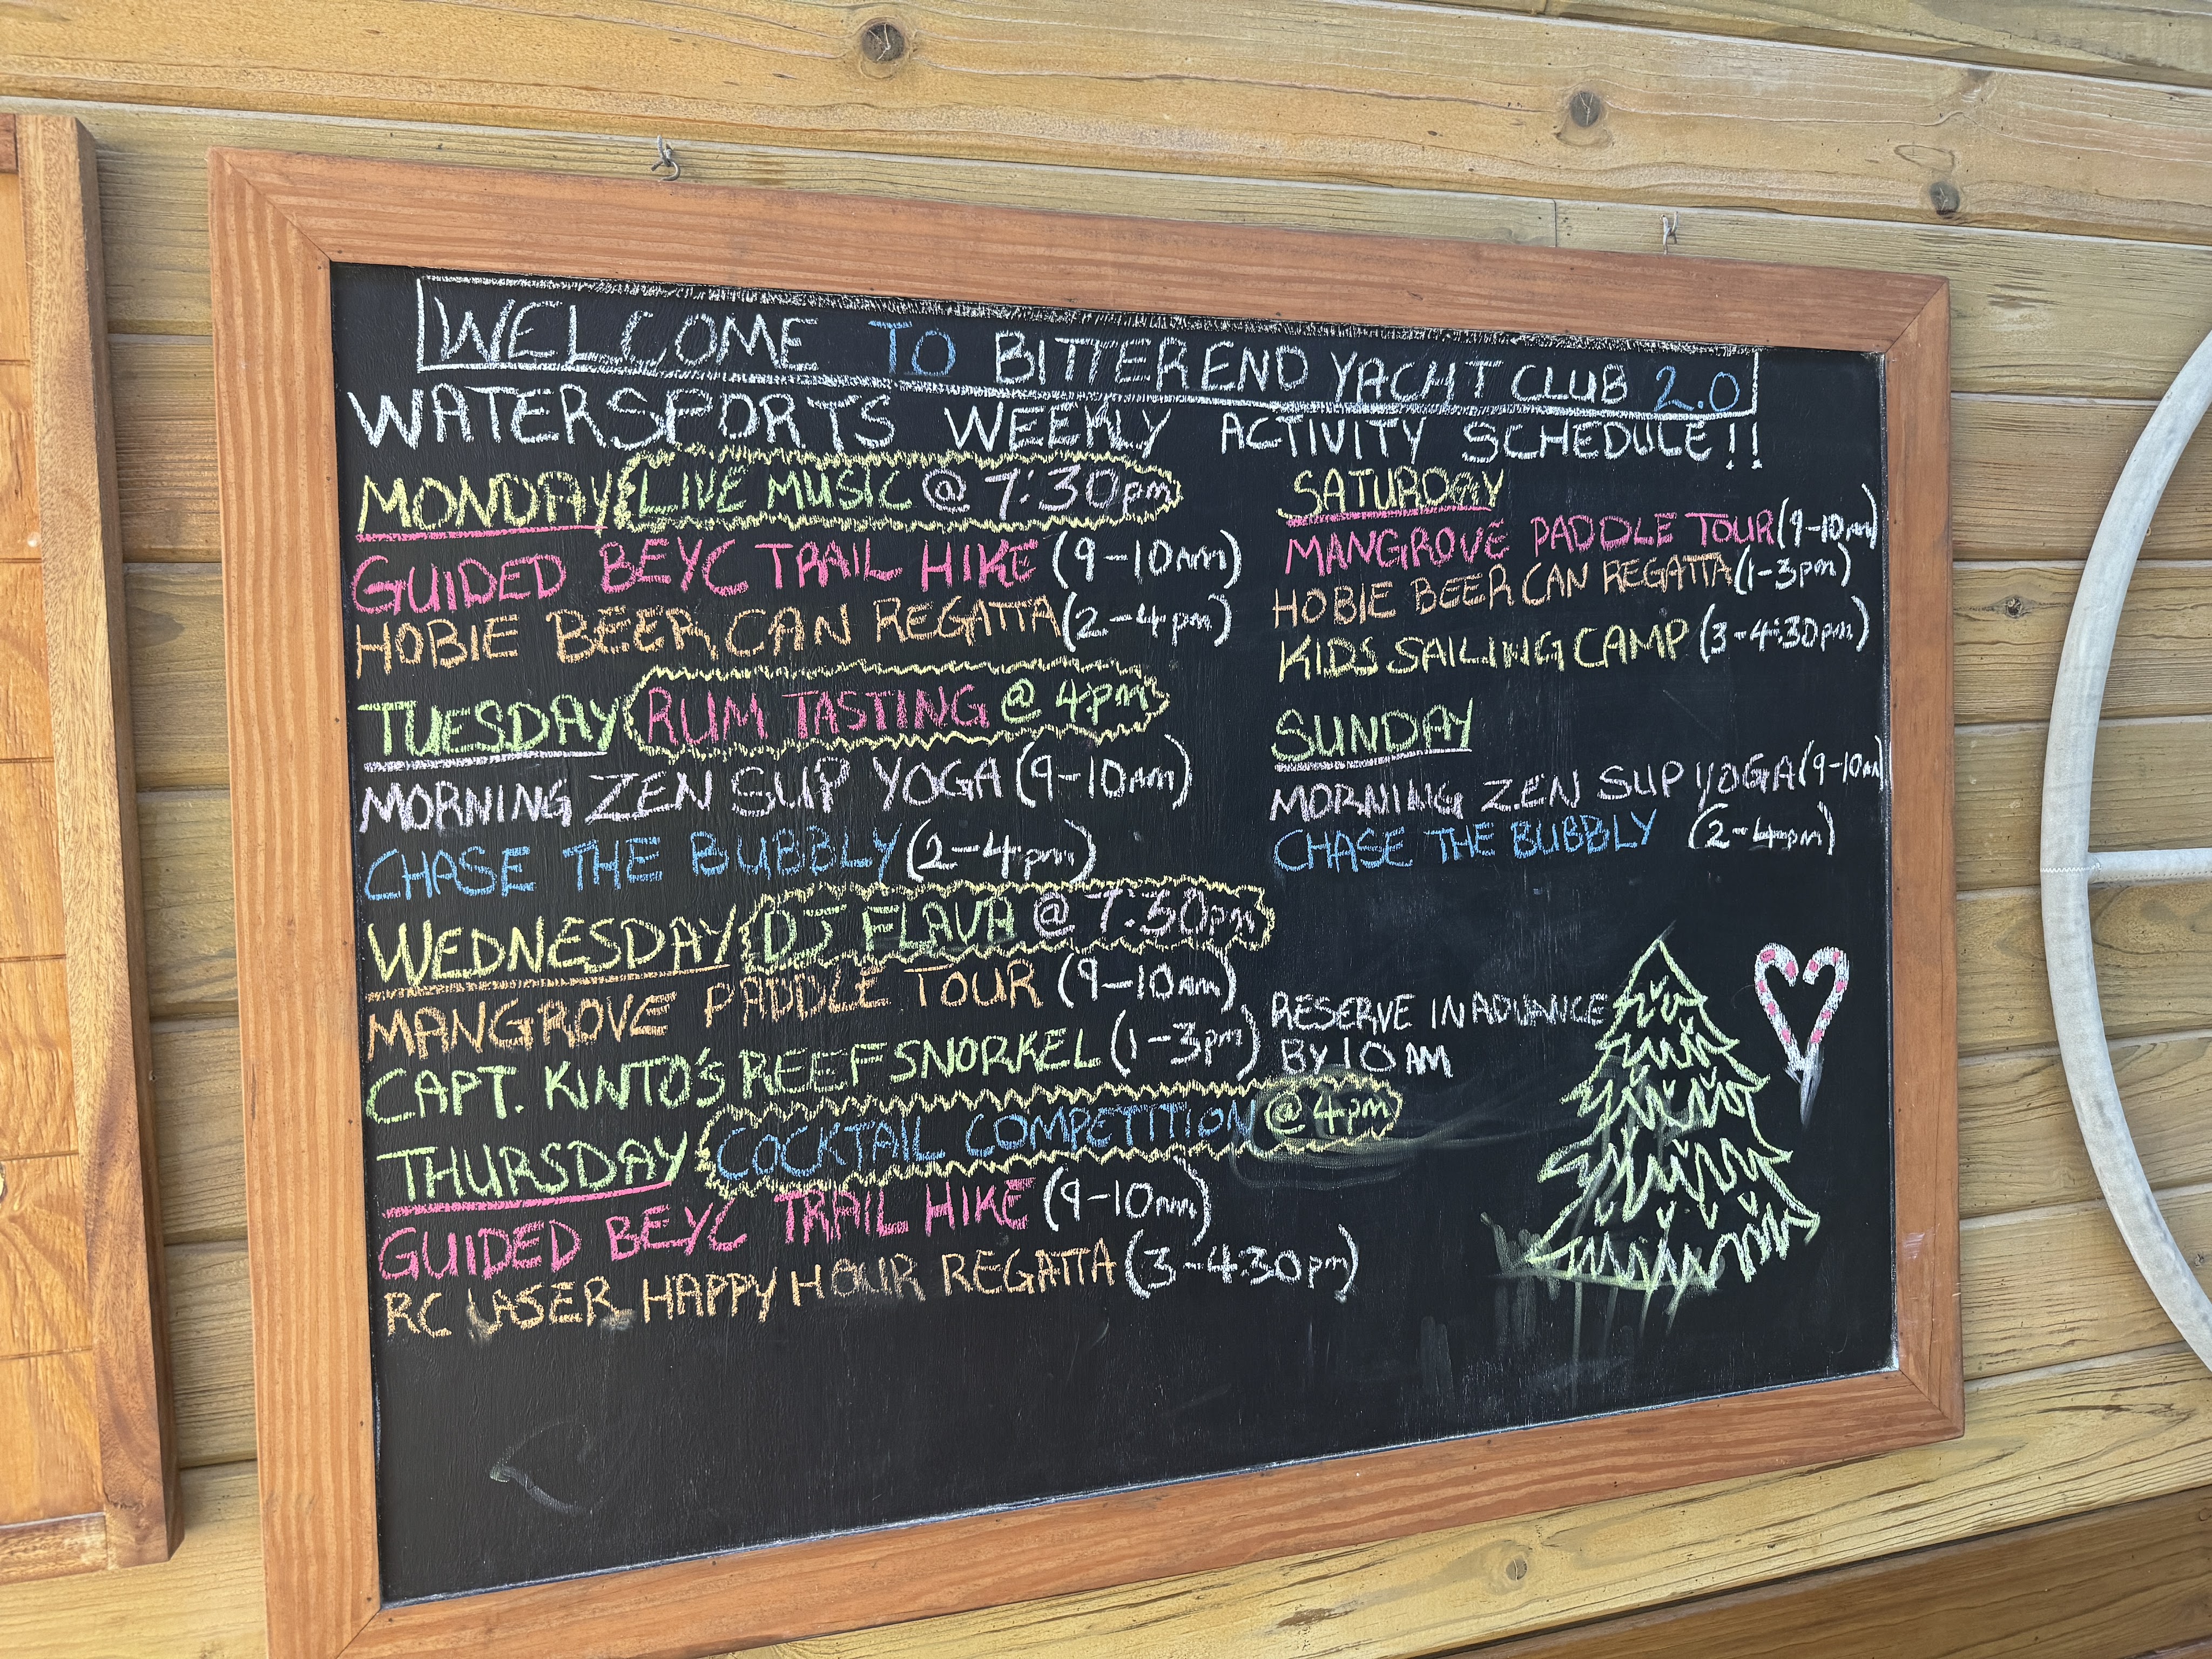 WELCOME TO BITTER END YACHT CLUB 2.0
WATERSPORTS WEEKLY ACTIVITY SCHEDULE!!
MONDAY LIVE MUSIC @ 7:30pm
GUIDED BEYC TRAIL HIKE (9-10AM)
HOBIE BEER CAN REGATTA (2-4pm)
TUESDAY RUM TASTING @ 4pm
MORNING ZEN SUP YOGA (9-10AM)
CHASE THE BUBBLY (2-4pm)
WEDNESDAY DJ FLAVA @ 7:30pm
MANGROVE PADDLE TOUR (9-10AM)
CAPT. KINTO'S REEF SNORKEL (1-3pm) RESERVE IN ADVANCE
BY 10 AM
THURSDAY COCKTAIL COMPETITION @ 4pm
GUIDED BEYC TRAIL HIKE (9-10AM)
RC LASER HAPPY HOUR REGATTA (3-4:30pm)
SATURDAY
MANGROVE PADDLE TOUR (9-10AM)
HOBIE BEER CAN REGATTA (1-3pm)
KIDS SAILING CAMP (3-4:30pm)
SUNDAY
MORNING ZEN SUP YOGA (9-10AM
CHASE THE BUBBLY (2-4pm)